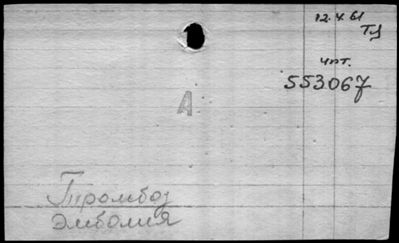 12.4.61
Тз
чит.
553067
А
Тромбоз
Эмболия